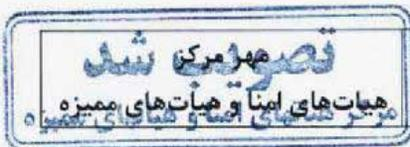 تصویب شد
مهر مرکز
هیات‌های امنا و هیات‌های ممیزه
مرکز هیأتهای امنا و هیأتهای ممیزه